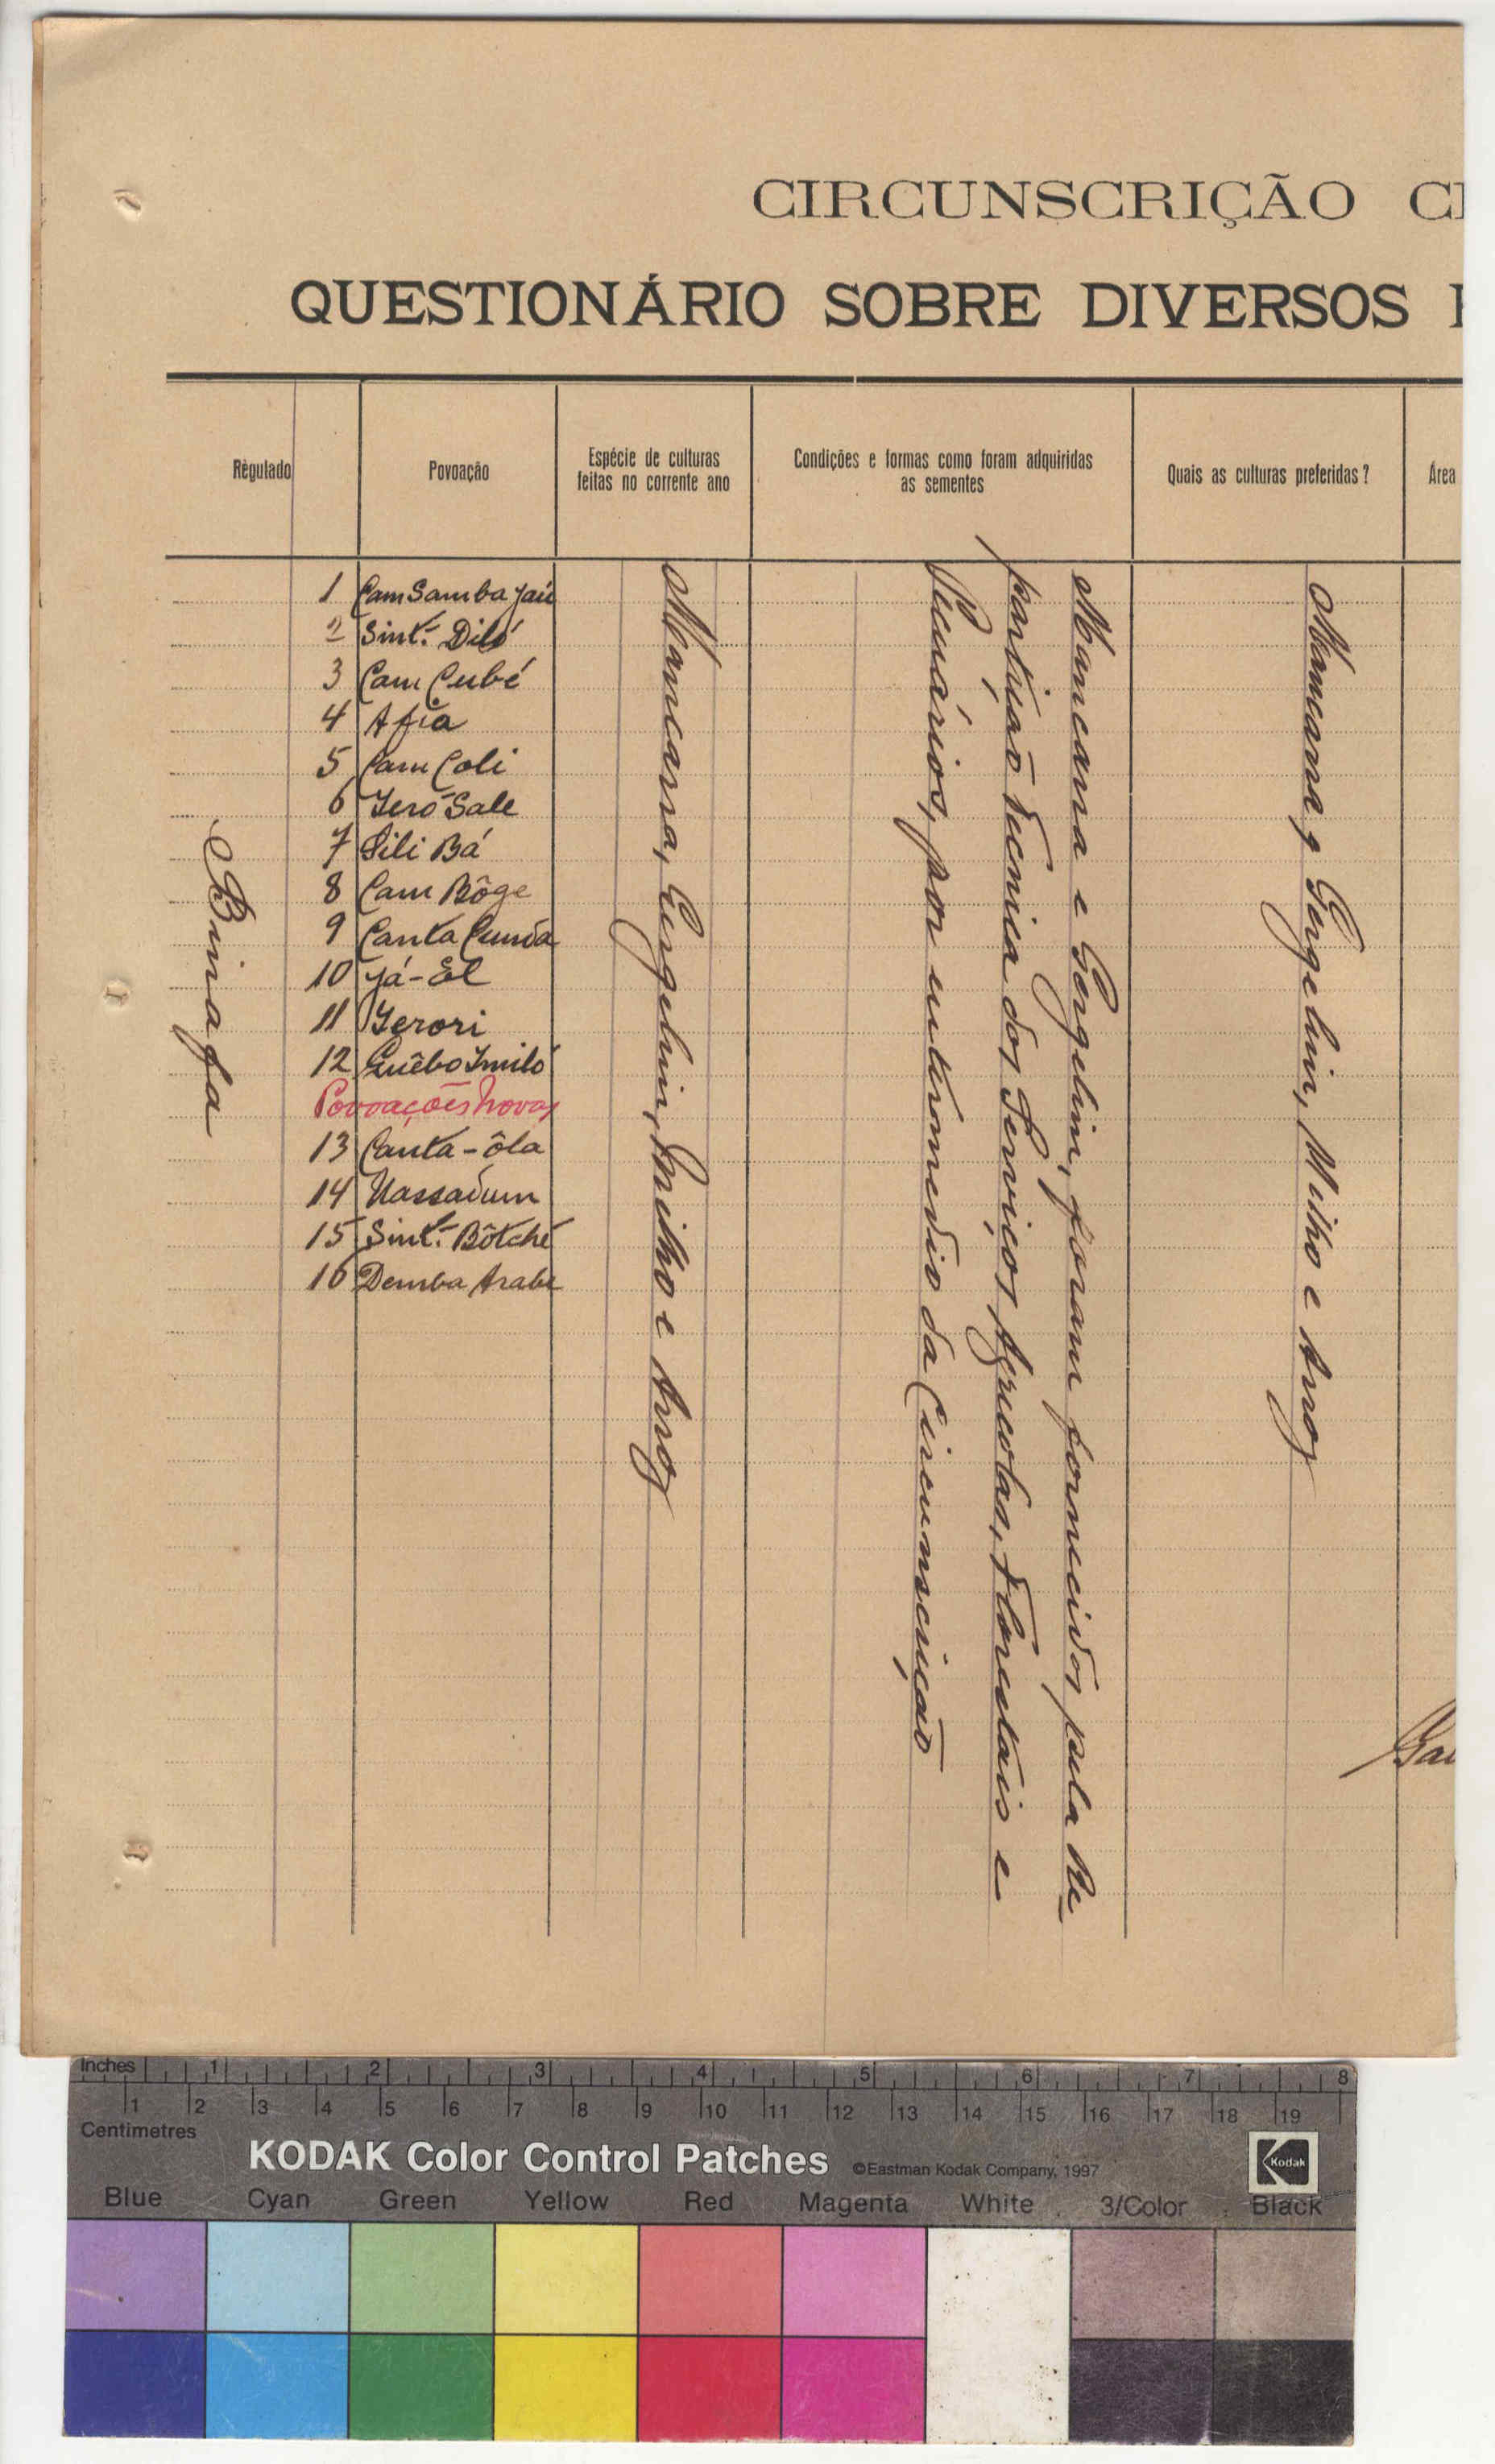 CIRCUNSCRIÇÃO CI
QUESTIONÁRIO SOBRE DIVERSOS
Règulado
Povoação
Espécie de culturas
feitas no corrente ano
Condições e formas como foram adquiridas
as sementes
Quais as culturas preferidas?
Área
Binafa
1 Cam Samba Jaú
2 Sint.- Diló
3 Cam Cubé
4 Afia
5 Cam Coli
6 Iero Sale
7 Sili Bá
8 Cam Bôge
9 Canta Cunda
10 Já-El
11 Gerori
12 Guêbo Imiló
Povoações Novas
13 Canta-ôla
14 Uassadum
15 Sint.- Bôtché
16 Demba Arabe
Mancarra, Gergelim, Milho e Arroz
Mancarra e Gergelim, foram fornecidos pela Re
partição Tecnica dos Serviços Agricolas, Florestais e
Pecuários, por intermedio da Circunscrição
Mancarra, Gergelim, Milho e Arroz
Inches 1 2 3 4 5 6 7 8
1 2 3 4 5 6 7 8 9 10 11 12 13 14 15 16 17 18 19
Centimetres
KODAK Color Control Patches ©Eastman Kodak Company, 1997 Kodak
Blue Cyan Green Yellow Red Magenta White 3/Color Black